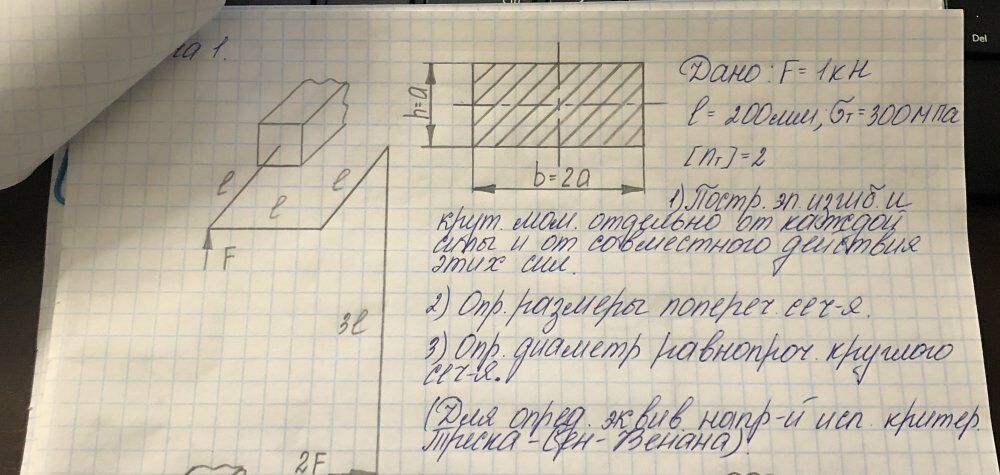 ча 1.
Дано: F = 1кН
l = 200мм; σт = 300МПа
[nт] = 2
h=a
b=2a
l
l
l
F
3l
2F
1) Постр. эп. изгиб. и
крут. мом. отдельно от каждой
силы и от совместного действия
этих сил.
2) Опр. размеры попереч. сеч-я.
3) Опр. диаметр равнопроч. круглого
сеч-я.
(Для опред. эквив. напр-й исп. критер.
Треска-Сен-Венана)
Del